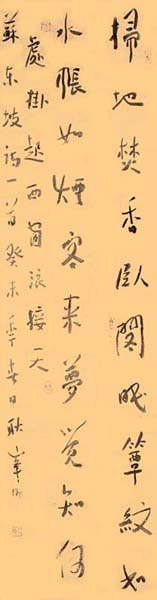 掃地焚香臥閣眠簟紋如
水帳如煙客來夢覺知何
處掛起西窗浪接天
蘇東坡詩一首癸未年春日耿